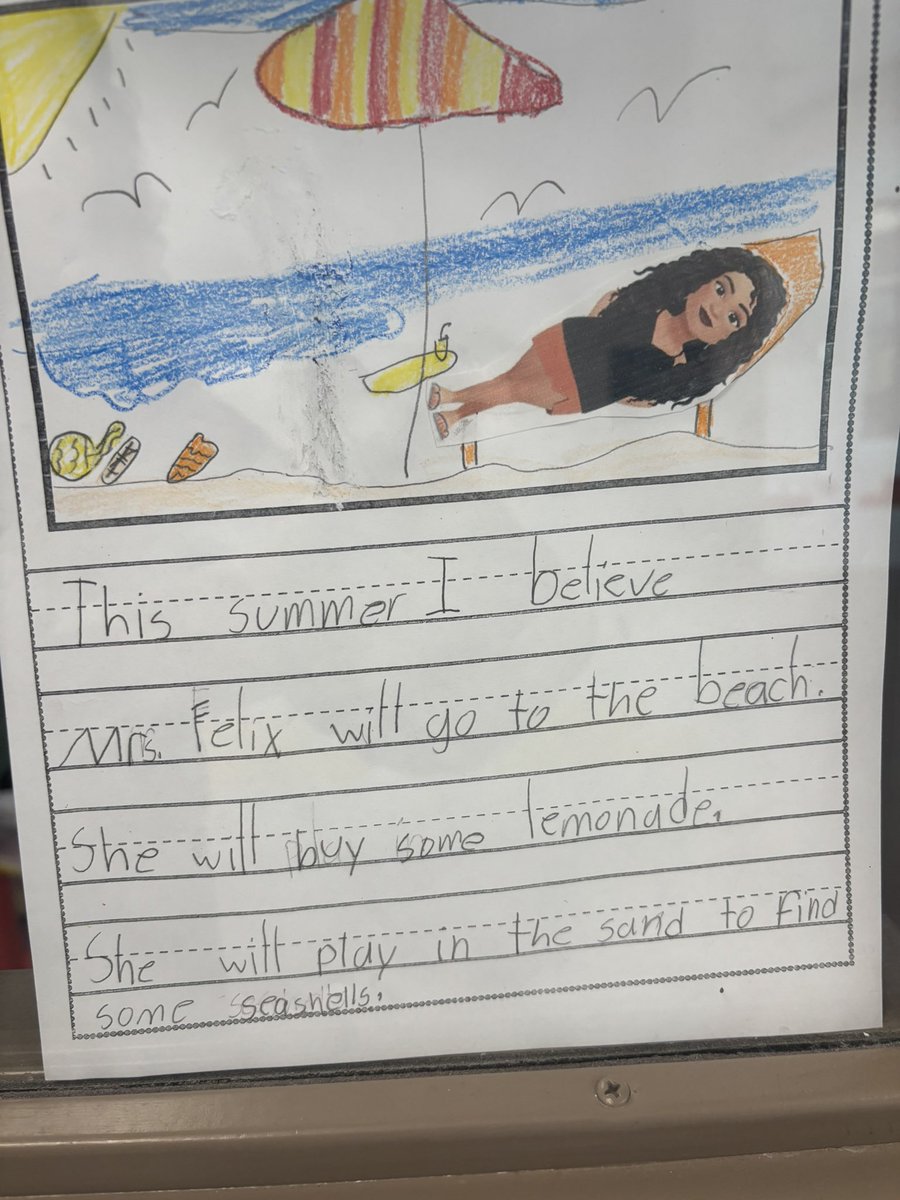 This summer I believe
Mrs. Felix will go to the beach.
She will buy some lemonade.
She will play in the sand to find
some seashells.